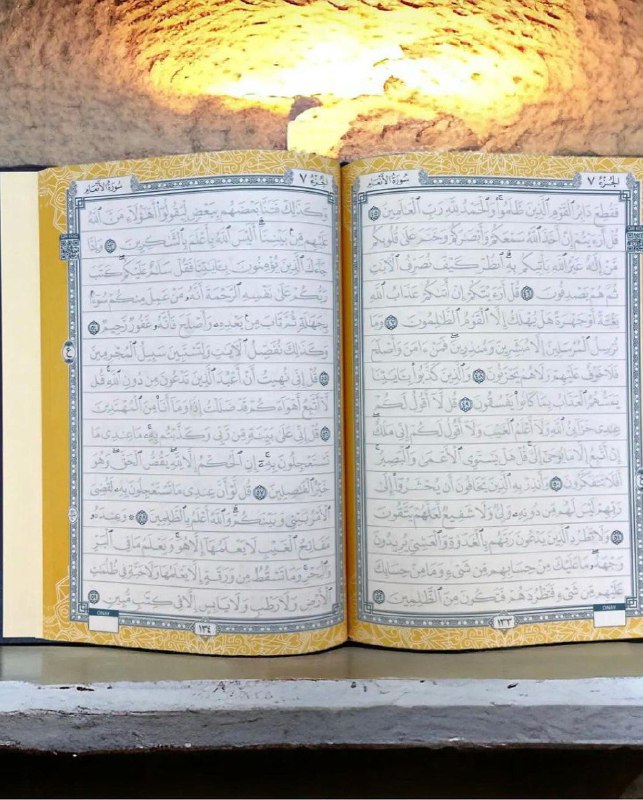 الجُزْءُ ٧ سُورَةُ الأَنْعَام
فَقُطِعَ دَابِرُ ٱلْقَوْمِ ٱلَّذِينَ ظَلَمُوا۟ وَٱلْحَمْدُ لِلَّهِ رَبِّ ٱلْعَٰلَمِينَ ٤٥
قُلْ أَرَءَيْتُمْ إِنْ أَخَذَ ٱللَّهُ سَمْعَكُمْ وَأَبْصَٰرَكُمْ وَخَتَمَ عَلَىٰ قُلُوبِكُم
مَّنْ إِلَٰهٌ غَيْرُ ٱللَّهِ يَأْتِيكُم بِهِ ۗ ٱنظُرْ كَيْفَ نُصَرِّفُ ٱلْءَايَٰتِ
ثُمَّ هُمْ يَصْدِفُونَ ٤٦ قُلْ أَرَءَيْتَكُمْ إِنْ أَتَىٰكُمْ عَذَابُ ٱللَّهِ
بَغْتَةً أَوْ جَهْرَةً هَلْ يُهْلَكُ إِلَّا ٱلْقَوْمُ ٱلظَّٰلِمُونَ ٤٧ وَمَا
نُرْسِلُ ٱلْمُرْسَلِينَ إِلَّا مُبَشِّرِينَ وَمُنذِرِينَ ۖ فَمَنْ ءَامَنَ وَأَصْلَحَ
فَلَا خَوْفٌ عَلَيْهِمْ وَلَا هُمْ يَحْزَنُونَ ٤٨ وَٱلَّذِينَ كَذَّبُوا۟ بِـَٔايَٰتِنَا
يَمَسُّهُمُ ٱلْعَذَابُ بِمَا كَانُوا۟ يَفْسُقُونَ ٤٩ قُل لَّآ أَقُولُ لَكُمْ
عِندِى خَزَآئِنُ ٱللَّهِ وَلَآ أَعْلَمُ ٱلْغَيْبَ وَلَآ أَقُولُ لَكُمْ إِنِّى مَلَكٌ ۖ
إِنْ أَتَّبِعُ إِلَّا مَا يُوحَىٰٓ إِلَىَّ ۚ قُلْ هَلْ يَسْتَوِى ٱلْأَعْمَىٰ وَٱلْبَصِيرُ ۚ
أَفَلَا تَتَفَكَّرُونَ ٥٠ وَأَنذِرْ بِهِ ٱلَّذِينَ يَخَافُونَ أَن يُحْشَرُوٓا۟ إِلَىٰ
رَبِّهِمْ ۙ لَيْسَ لَهُم مِّن دُونِهِۦ وَلِىٌّ وَلَا شَفِيعٌ لَّعَلَّهُمْ يَتَّقُونَ
٥١ وَلَا تَطْرُدِ ٱلَّذِينَ يَدْعُونَ رَبَّهُم بِٱلْغَدَوٰةِ وَٱلْعَشِىِّ يُرِيدُونَ
وَجْهَهُۥ ۖ مَا عَلَيْكَ مِنْ حِسَابِهِم مِّن شَىْءٍ وَمَا مِنْ حِسَابِكَ
عَلَيْهِم مِّن شَىْءٍ فَتَطْرُدَهُمْ فَتَكُونَ مِنَ ٱلظَّٰلِمِينَ ٥٢
ONAY
١٣٣
الجُزْءُ ٧ سُورَةُ الأَنْعَام
وَكَذَٰلِكَ فَتَنَّا بَعْضَهُم بِبَعْضٍ لِّيَقُولُوٓا۟ أَهَٰٓؤُلَآءِ مَنَّ ٱللَّهُ
عَلَيْهِم مِّنۢ بَيْنِنَآ ۗ أَلَيْسَ ٱللَّهُ بِأَعْلَمَ بِٱلشَّٰكِرِينَ ٥٣ وَإِذَا
جَآءَكَ ٱلَّذِينَ يُؤْمِنُونَ بِـَٔايَٰتِنَا فَقُلْ سَلَٰمٌ عَلَيْكُمْ ۖ كَتَبَ
رَبُّكُمْ عَلَىٰ نَفْسِهِ ٱلرَّحْمَةَ ۖ أَنَّهُۥ مَنْ عَمِلَ مِنكُمْ سُوٓءًۢا
بِجَهَٰلَةٍ ثُمَّ تَابَ مِنۢ بَعْدِهِۦ وَأَصْلَحَ فَأَنَّهُۥ غَفُورٌ رَّحِيمٌ ٥٤
وَكَذَٰلِكَ نُفَصِّلُ ٱلْءَايَٰتِ وَلِتَسْتَبِينَ سَبِيلُ ٱلْمُجْرِمِينَ
٥٥ قُلْ إِنِّى نُهِيتُ أَنْ أَعْبُدَ ٱلَّذِينَ تَدْعُونَ مِن دُونِ ٱللَّهِ ۚ قُل
لَّآ أَتَّبِعُ أَهْوَآءَكُمْ ۙ قَدْ ضَلَلْتُ إِذًا وَمَآ أَنَا۠ مِنَ ٱلْمُهْتَدِينَ
٥٦ قُلْ إِنِّى عَلَىٰ بَيِّنَةٍ مِّن رَّبِّى وَكَذَّبْتُم بِهِۦ ۚ مَا عِندِى مَا
تَسْتَعْجِلُونَ بِهِۦٓ ۚ إِنِ ٱلْحُكْمُ إِلَّا لِلَّهِ ۖ يَقُصُّ ٱلْحَقَّ ۖ وَهُوَ
خَيْرُ ٱلْفَٰصِلِينَ ٥٧ قُل لَّوْ أَنَّ عِندِى مَا تَسْتَعْجِلُونَ بِهِۦ لَقُضِىَ
ٱلْأَمْرُ بَيْنِى وَبَيْنَكُمْ ۗ وَٱللَّهُ أَعْلَمُ بِٱلظَّٰلِمِينَ ٥٨ وَعِندَهُۥ
مَفَاتِحُ ٱلْغَيْبِ لَا يَعْلَمُهَآ إِلَّا هُوَ ۚ وَيَعْلَمُ مَا فِى ٱلْبَرِّ
وَٱلْبَحْرِ ۚ وَمَا تَسْقُطُ مِن وَرَقَةٍ إِلَّا يَعْلَمُهَا وَلَا حَبَّةٍ فِى ظُلُمَٰتِ
ٱلْأَرْضِ وَلَا رَطْبٍ وَلَا يَابِسٍ إِلَّا فِى كِتَٰبٍ مُّبِينٍ ٥٩
ONAY
١٣٤